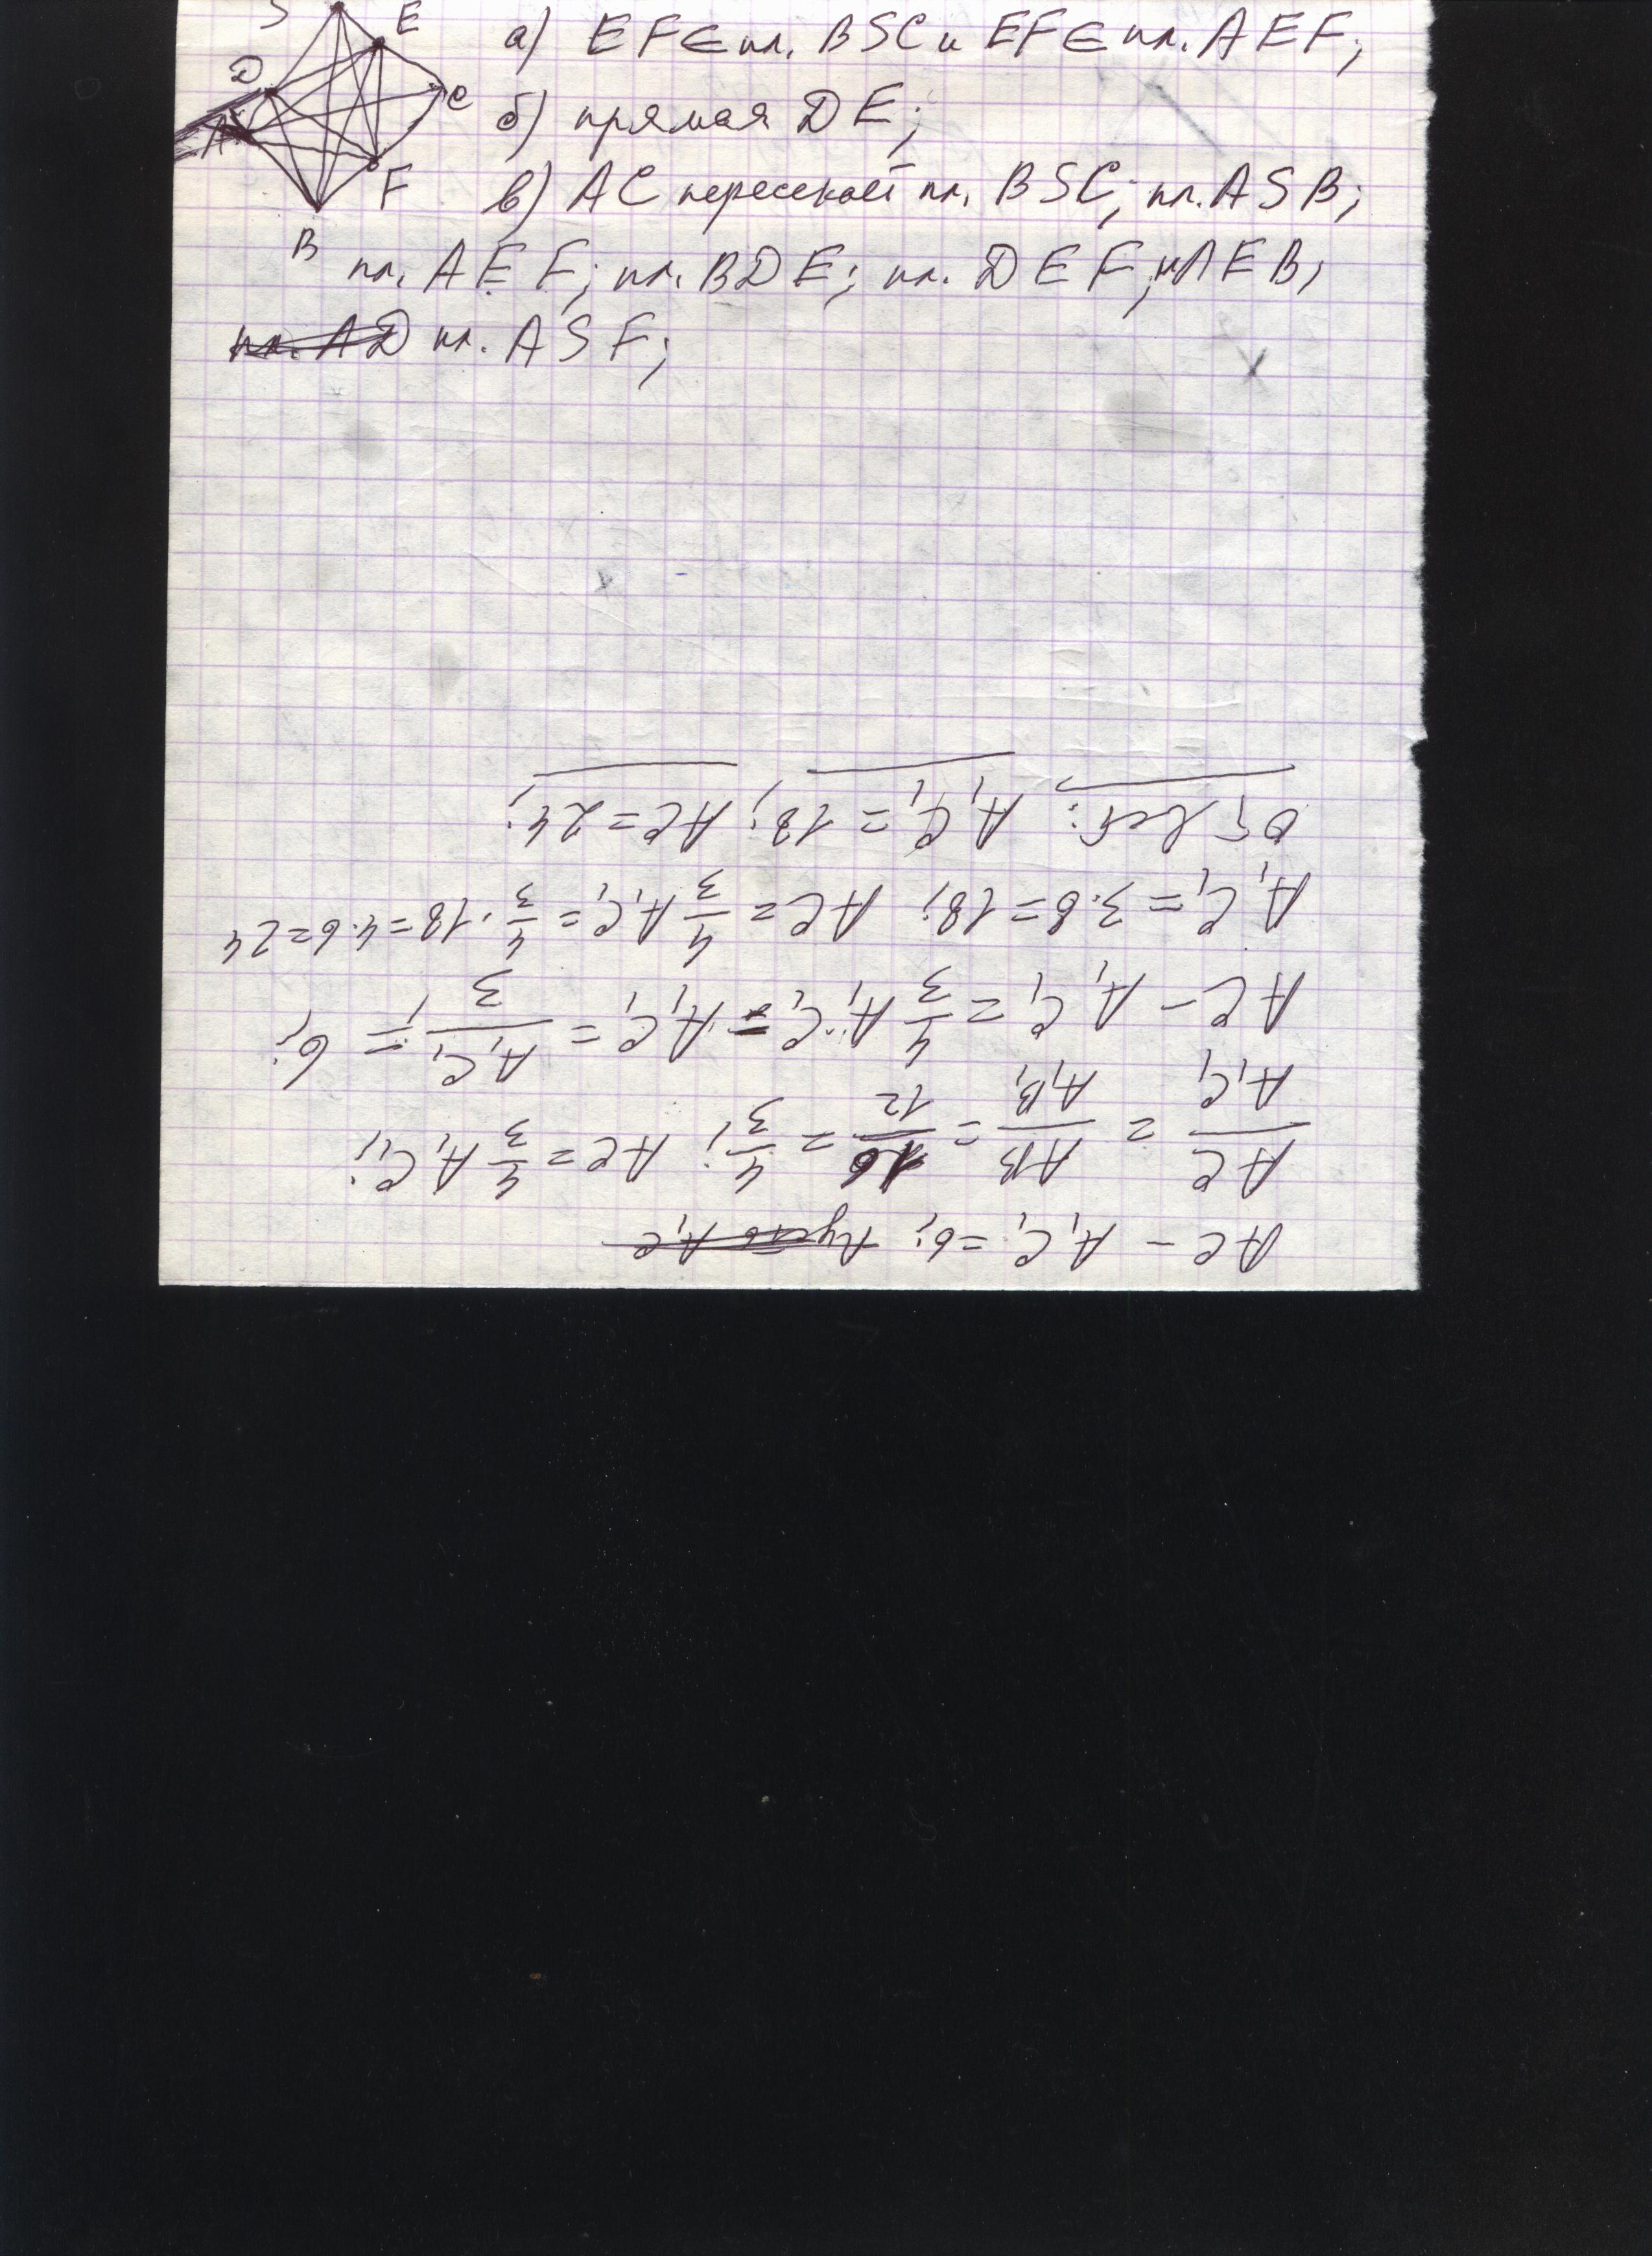 S E
D C
A F
B
а) EF ∈ пл. BSC и EF ∈ пл. AEF;
б) прямая DE;
в) AC пересекает пл. BSC; пл. ASB;
пл. AEF; пл. BDE; пл. DEF; AEB;
пл. AD пл. ASF;
AC - A₁C₁ = 6; Пусть A₁C
AC/A₁C₁ = AB/A₁B₁ = 16/12 = 4/3; AC = 4/3 A₁C₁;
AC - A₁C₁ = 4/3 A₁C₁ - A₁C₁ = A₁C₁/3 = 6;
A₁C₁ = 3·6 = 18; AC = 4/3 A₁C₁ = 4/3 · 18 = 4·6 = 24
Ответ: A₁C₁ = 18; AC = 24;